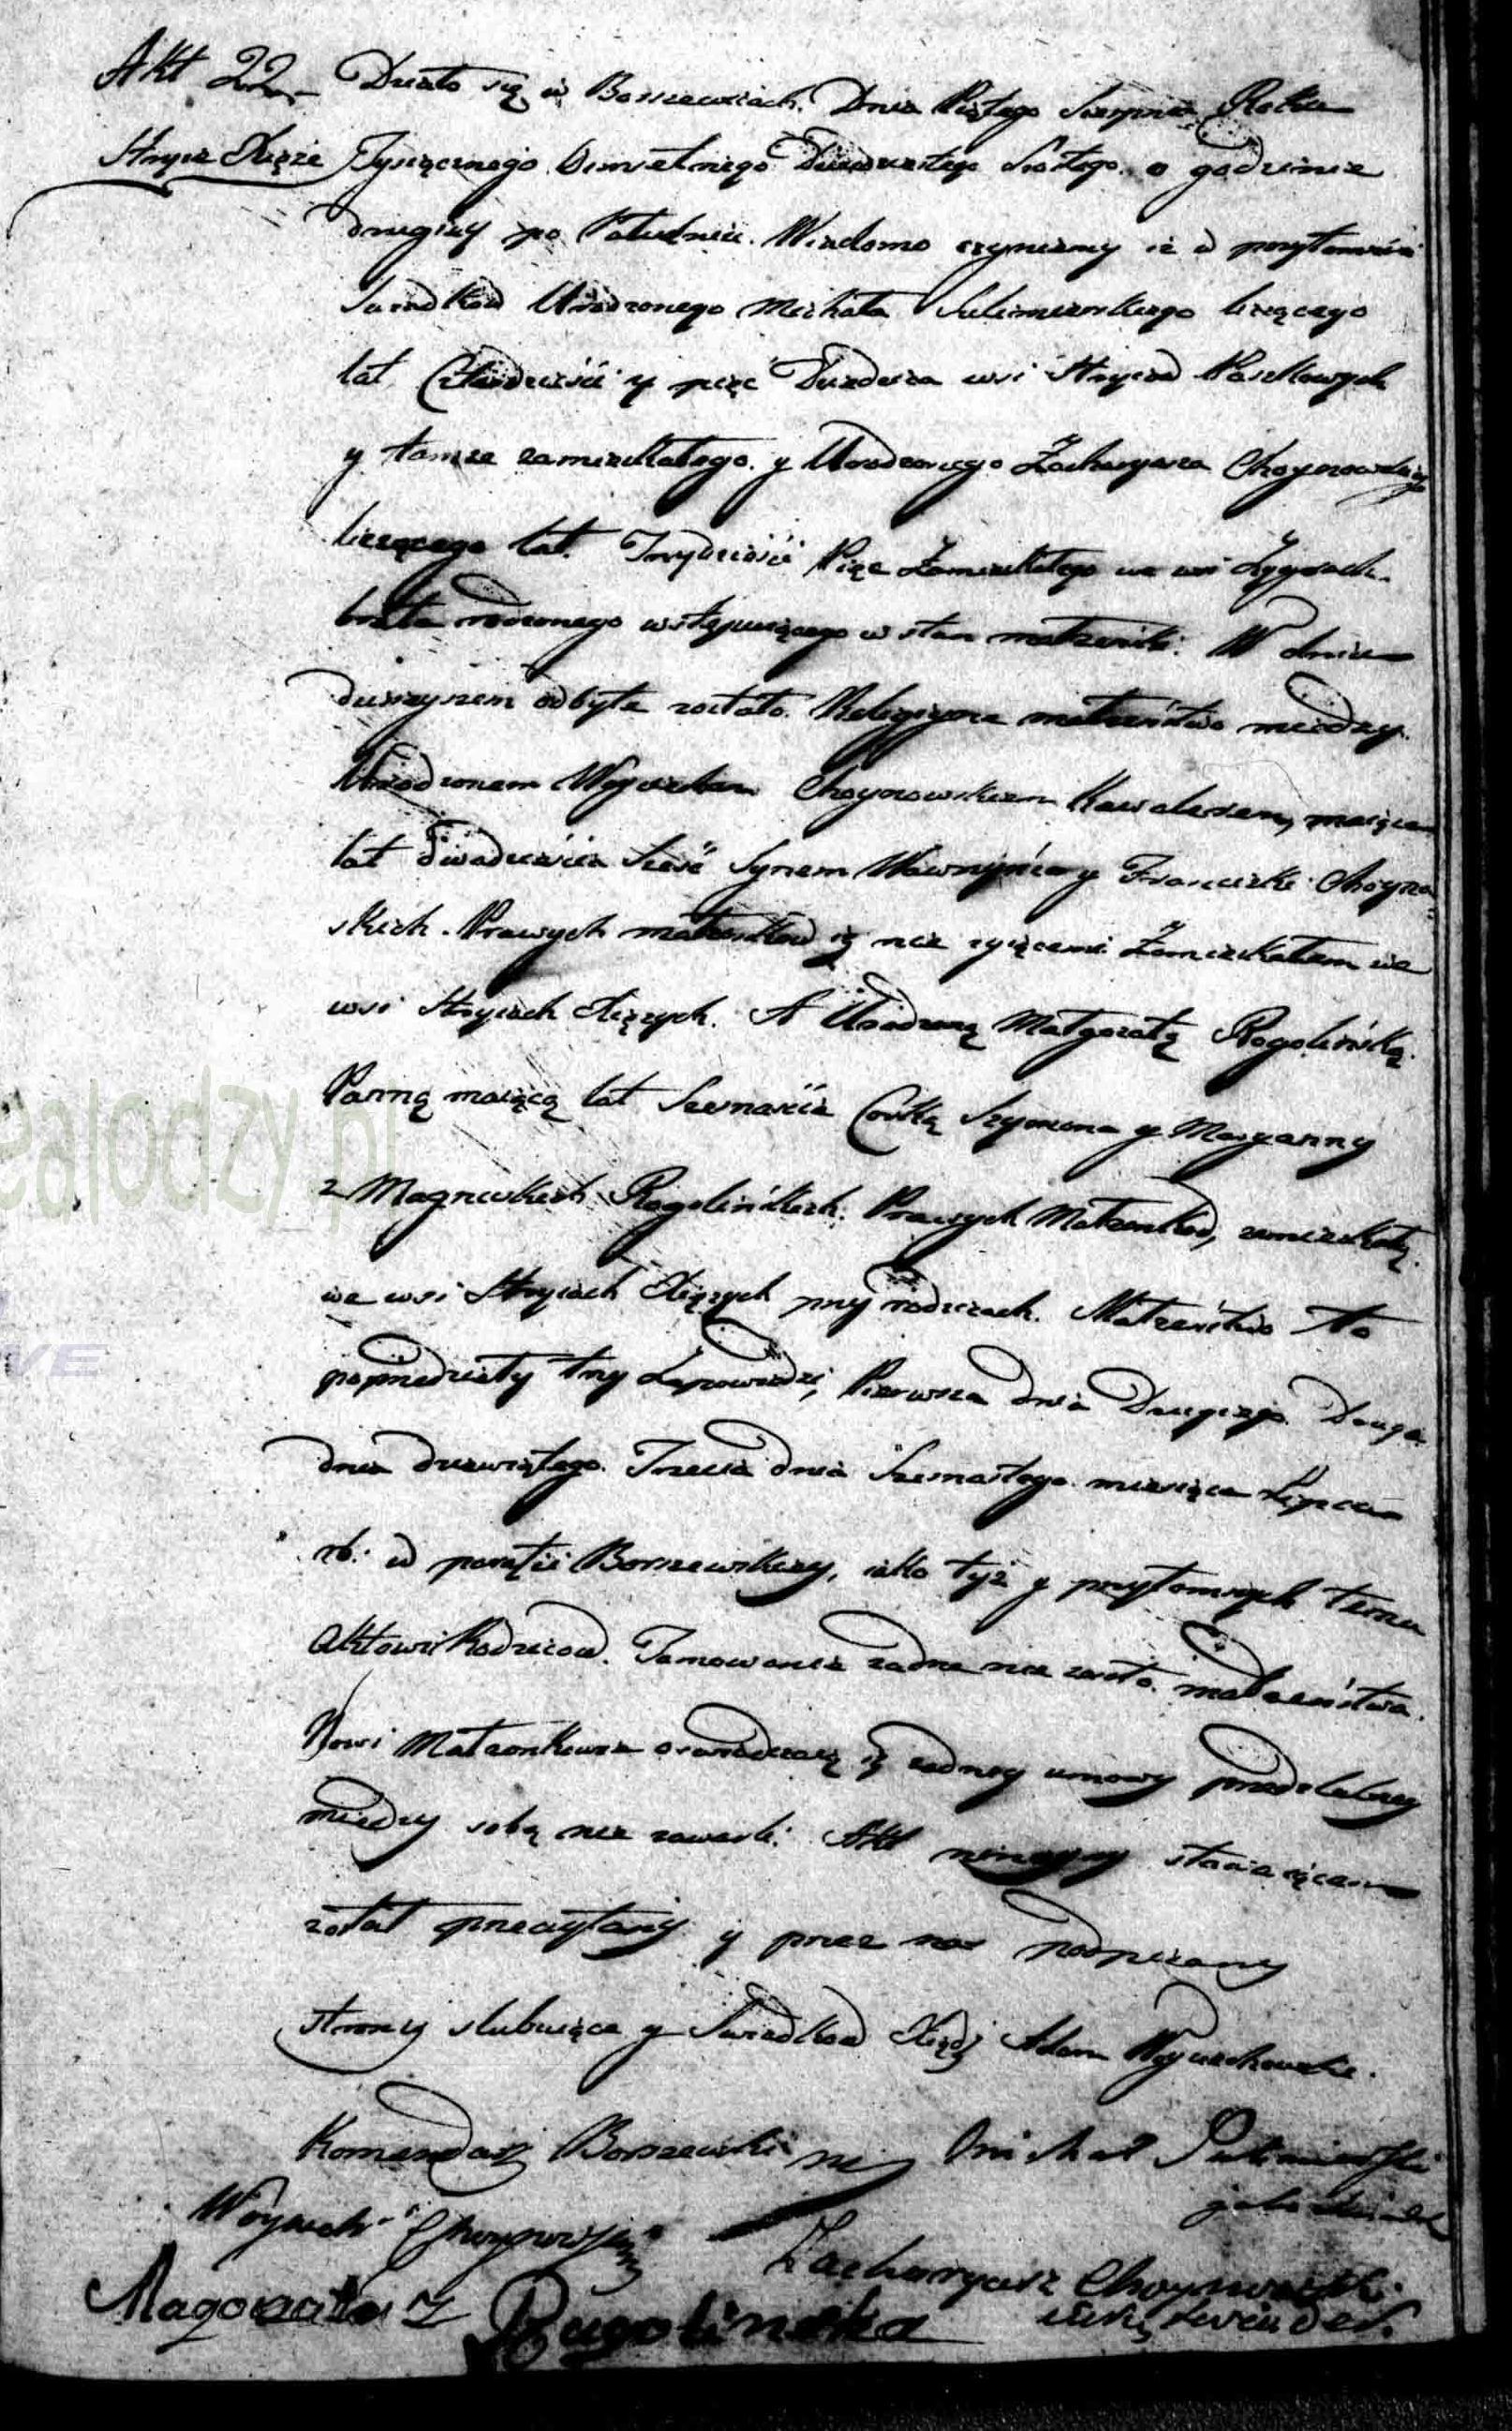 Akt 22. Działo się w Borszewicach. Dnia Piątego Sierpnia Roku
Stryie Xięże Tysiącznego Osmsetnego Dwudziestego Szóstego o godzinie
drugiey po Południu. Wiadomo czyniemy iż w przytomności
Swiadków Urodzonego Michała Sulimierskiego liczącego
lat Czterdzieści y pięć Dziedzica wsi Stryiów Paskowych
y tamże zamieszkałego y Urodzonego Zacharyasza Choynowskiego
liczącego lat Trzydzieści Pięc Zamieszkałego we wsi
brata rodzonego wstępuiącego w stan małżeński. W dniu
dzisiayszem odbyte zostało Religiyne małżeństwo między
Urodzonem Woyciechem Choynowskiem Kawalerem, maiącem
lat Dwadzieścia Sześć Synem Wawrzyńca y Franciszki Choyno=
skich. Prawych małżonków iż nie żyiącemi Zamieszkałem we
wsi Stryiach Xiężych. A Urodzoną Małgorzatą Rogolińską
Panną maiącą lat Szesnaście Corką Szymona y Maryanny
z Rogolińskich. Prawych Małżonków, zamieszkałą
we wsi Stryiach Xiężych przy rodzicach. Małżeństwo to
poprzedziały trzy Zapowiedzi, Pierwsza dnia Drugiego Druga
dnia dziewiątego. Trzecia dnia Szesnastego miesiąca Lipca
rb. w parafii Borszewskiey, iako też y przytomnych temu
Aktowi Rodziców. Tamowanie żadne nie zaszło małżeństwa.
Nowi Małżonkowie oświadczaią iż żadney umowy przedślubney
między sobą nie zawarli. Akt ninieyszy stawaiącem
został przeczytany y przez nas podpisany
strony slubuiące y Swiadków Xiądz Adam Woyciechowski
Komendarz Borszewski Michał Sulimierski
Woyciech Choynowski jako swiadek
Zacharyasz Choynowski
Magorzata Rugolinska jako swiadek